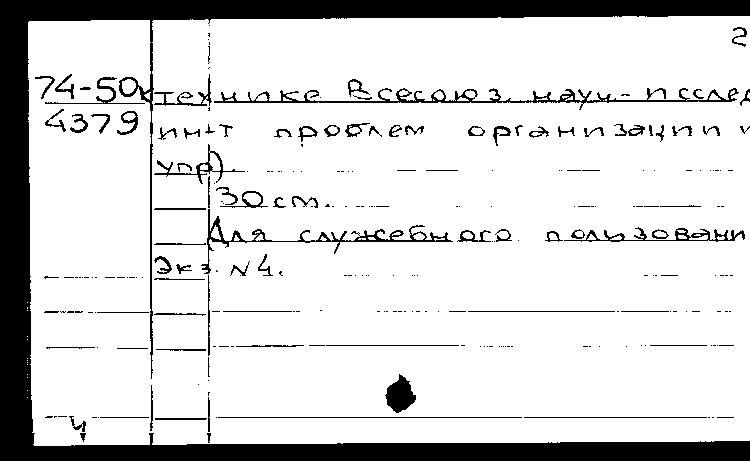 2
74-50к технике Всесоюз. науч-исслед
4379 ин-т проблем организации и
упр).
30 ст.
Для служебного пользовани
Экз. N4.